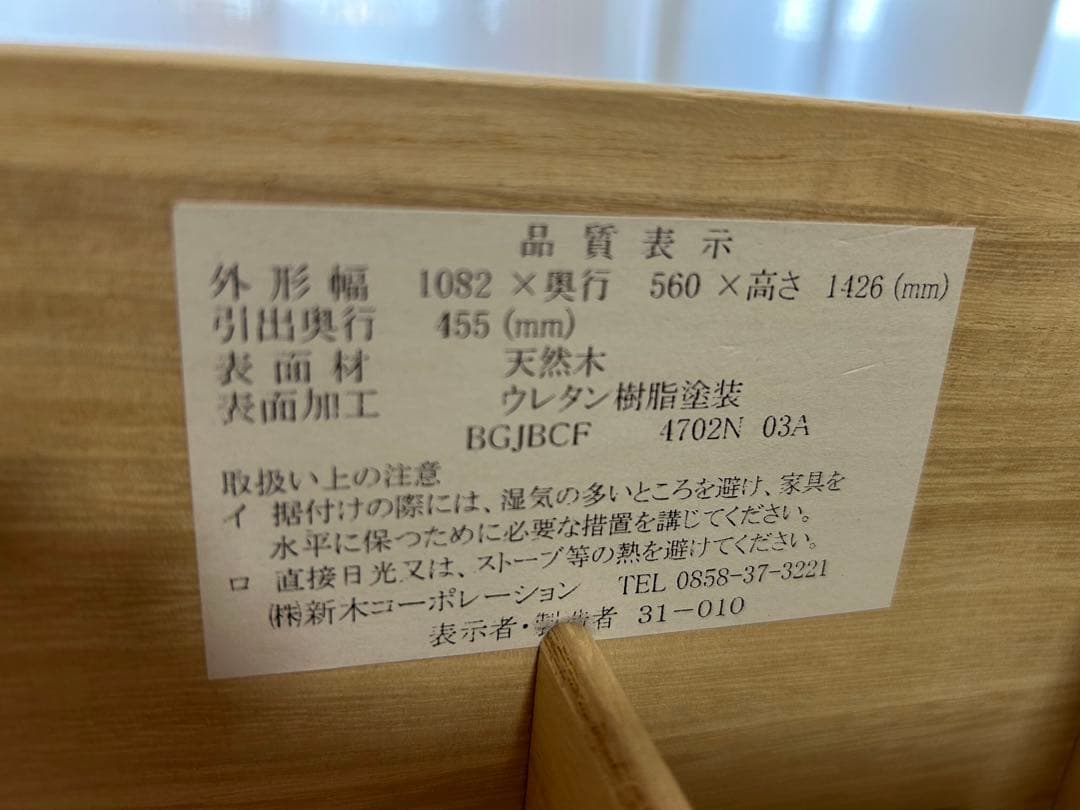 品質表示
外形幅 1082×奥行 560×高さ 1426(mm)
引出奥行 455(mm)
表面材 天然木
表面加工 ウレタン樹脂塗装
BGJBCF 4702N 03A
取扱い上の注意
イ 据付けの際には、湿気の多いところを避け、家具を
水平に保つために必要な措置を講じてください。
ロ 直接日光又は、ストーブ等の熱を避けてください。
㈱新木コーポレーション TEL 0858-37-3221
表示者・製造者 31-010